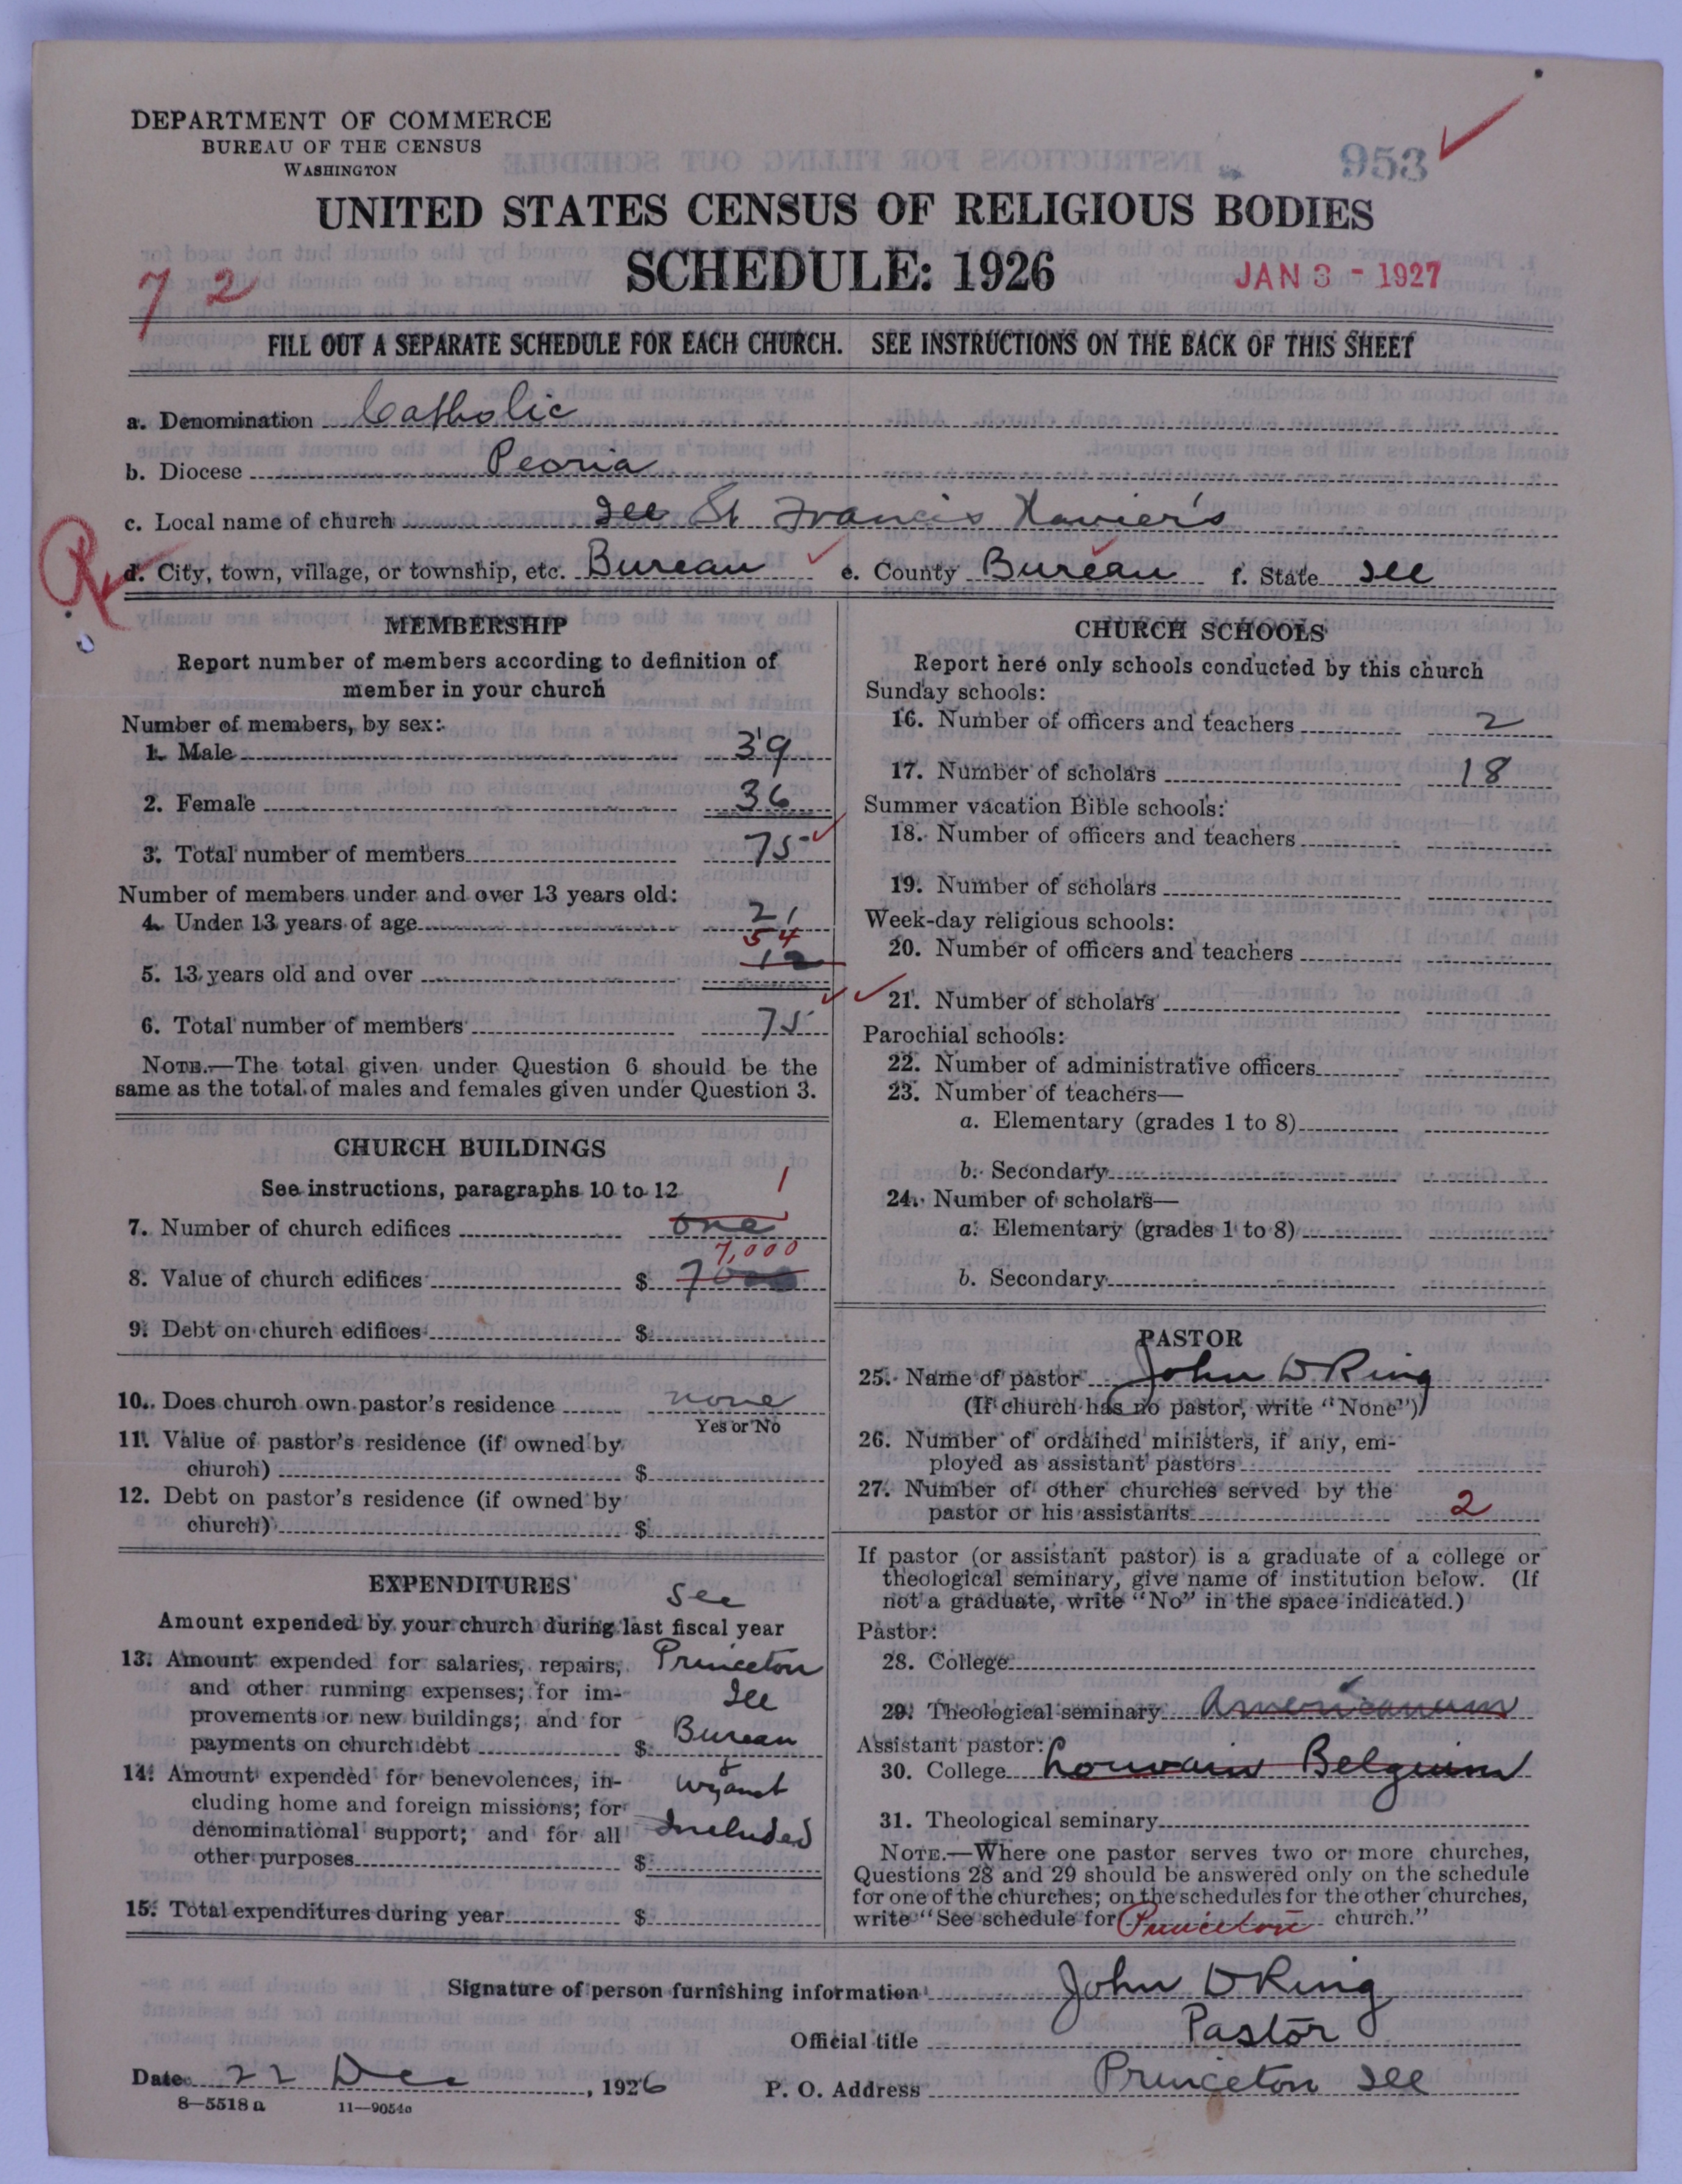 DEPARTMENT OF COMMERCE
BUREAU OF THE CENSUS
WASHINGTON
953
UNITED STATES CENSUS OF RELIGIOUS BODIES
SCHEDULE: 1926
JAN 3 - 1927
72
FILL OUT A SEPARATE SCHEDULE FOR EACH CHURCH. SEE INSTRUCTIONS ON THE BACK OF THIS SHEET
a. Denomination Catholic
b. Diocese Peoria
c. Local name of church Ill St Francis Xavier's
d. City, town, village, or township, etc. Bureau e. County Bureau f. State Ill
MEMBERSHIP
Report number of members according to definition of
member in your church
Number of members, by sex:
1. Male 39
2. Female 36
3. Total number of members 75
Number of members under and over 13 years old:
4. Under 13 years of age 21
54
5. 13 years old and over 12
6. Total number of members 75
NOTE.—The total given under Question 6 should be the
same as the total of males and females given under Question 3.
CHURCH BUILDINGS
See instructions, paragraphs 10 to 12
1
7. Number of church edifices one
7,000
8. Value of church edifices $ 7000
9. Debt on church edifices $
10. Does church own pastor's residence none
Yes or No
11. Value of pastor's residence (if owned by
church) $
12. Debt on pastor's residence (if owned by
church) $
EXPENDITURES
See
Amount expended by your church during last fiscal year
13. Amount expended for salaries, repairs, Princeton
and other running expenses; for im- Ill
provements or new buildings; and for
payments on church debt $ Bureau
14. Amount expended for benevolences, in- & Wyanet
cluding home and foreign missions; for
denominational support; and for all Included
other purposes $
15. Total expenditures during year $
CHURCH SCHOOLS
Report here only schools conducted by this church
Sunday schools:
16. Number of officers and teachers 2
17. Number of scholars 18
Summer vacation Bible schools:
18. Number of officers and teachers
19. Number of scholars
Week-day religious schools:
20. Number of officers and teachers
21. Number of scholars
Parochial schools:
22. Number of administrative officers
23. Number of teachers—
a. Elementary (grades 1 to 8)
b. Secondary
24. Number of scholars—
a. Elementary (grades 1 to 8)
b. Secondary
PASTOR
25. Name of pastor John D Ring
(If church has no pastor, write "None")
26. Number of ordained ministers, if any, em-
ployed as assistant pastors
27. Number of other churches served by the
pastor or his assistants 2
If pastor (or assistant pastor) is a graduate of a college or
theological seminary, give name of institution below. (If
not a graduate, write "No" in the space indicated.)
Pastor:
28. College
29. Theological seminary Americanum
Assistant pastor:
30. College Louvain Belgium
31. Theological seminary
NOTE.—Where one pastor serves two or more churches,
Questions 28 and 29 should be answered only on the schedule
for one of the churches; on the schedules for the other churches,
write "See schedule for Princeton church."
Signature of person furnishing information John D Ring
Official title Pastor
Date 22 Dec, 1926 P. O. Address Princeton Ill
8—5518a 11—9054a